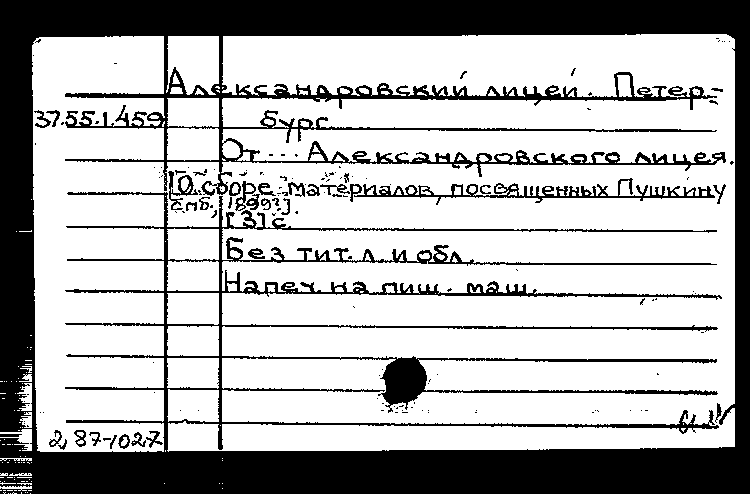 Александровский лицей. Петер-
37.55.1.459 бург.
От ... Александровского лицея.
[О сборе материалов, посвященных Пушкину
Спб., 1899?].
[3] с.
Без тит. л. и обл.
Напеч. на пиш. маш.
2, 87-1027